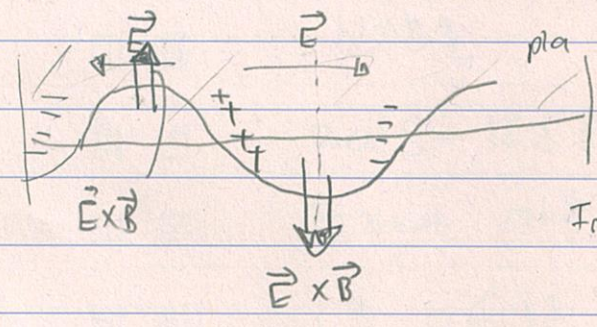 E⃗ E⃗ pla
- - - - + + + + - - - -
E⃗ × B⃗
E⃗ × B⃗